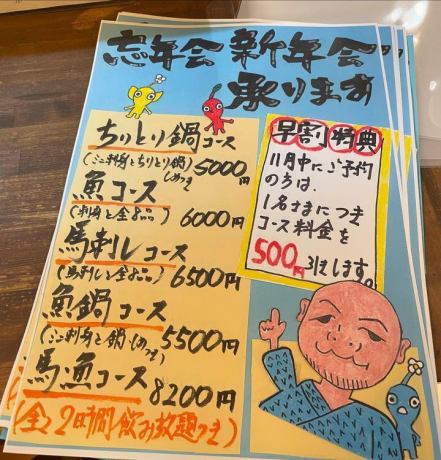 忘年会 新年会
承ります
ちりとり鍋コース
(ミニ刺身とちりとり鍋)
しめつき
5000円
魚コース
(刺身と全8品)
6000円
馬刺しコース
(馬刺しと全8品)
6500円
魚鍋コース
(ミニ刺身と鍋・しめつき)
5500円
馬・魚コース
8200円
(全て2時間飲み放題つき)
早割特典
11月中にご予約
の方は、
1名さまにつき
コース料金を
500円引きします。